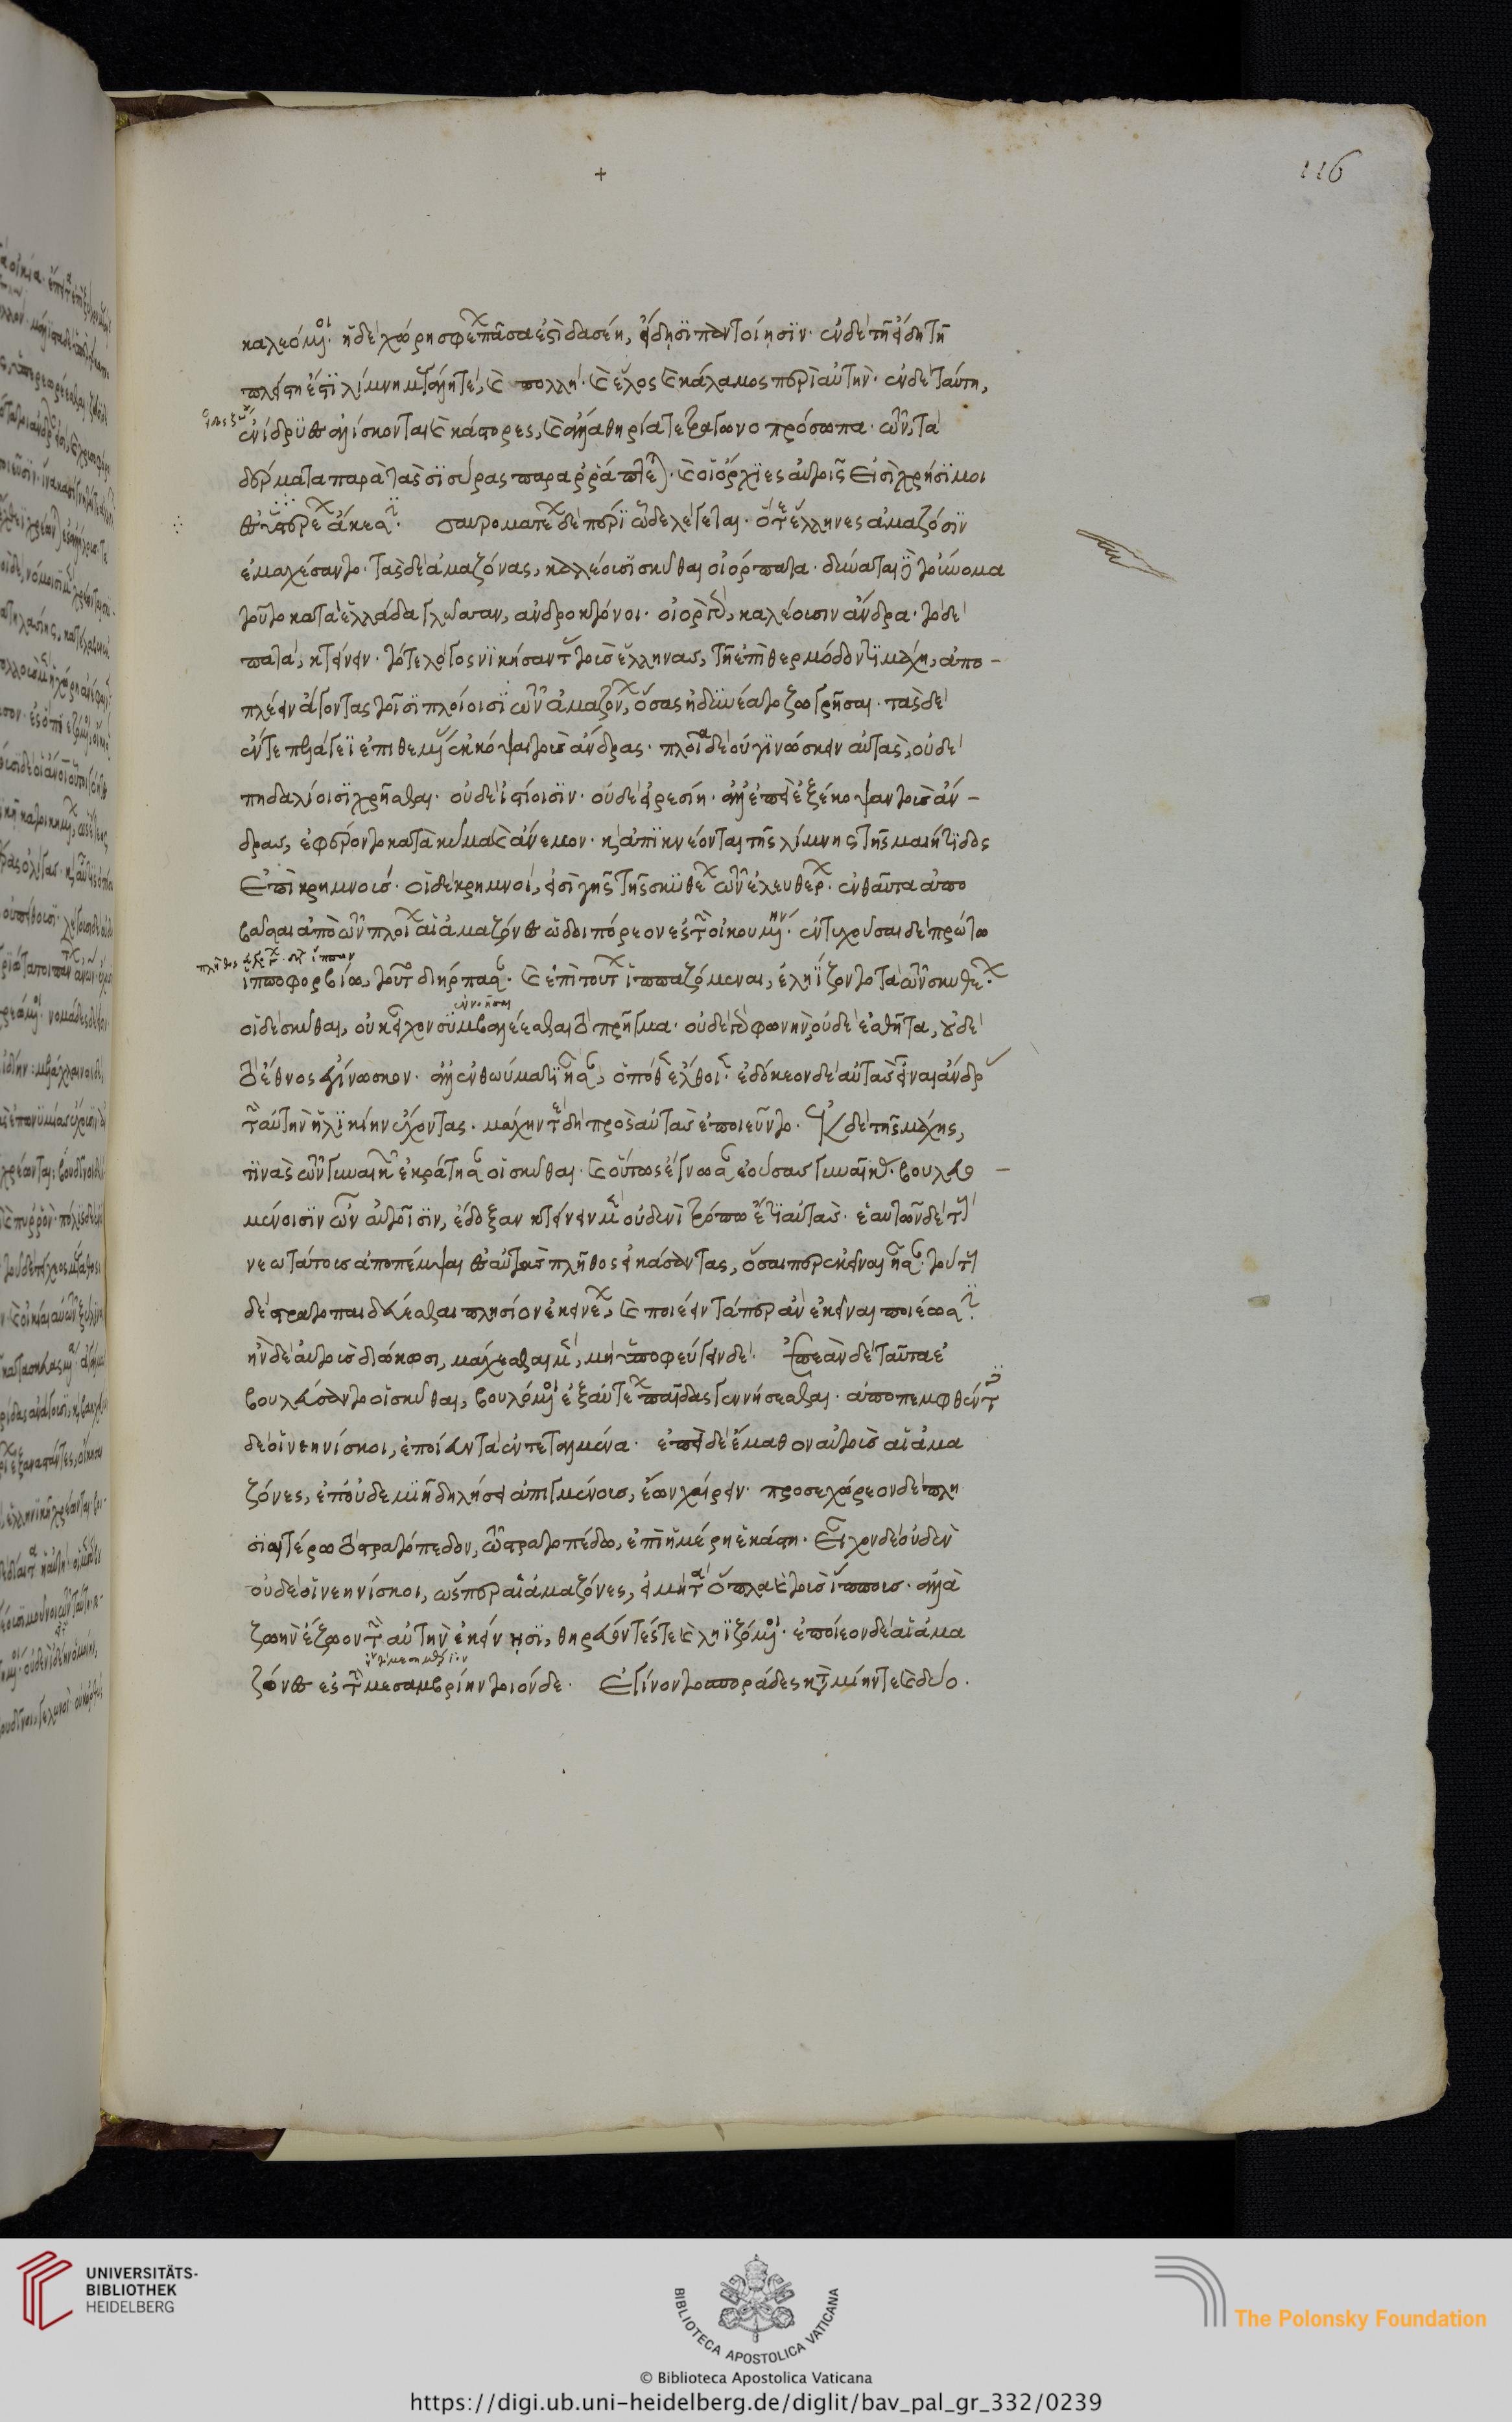 +
116
καλεόμενοι· ἡ δὲ χώρη σφέων πᾶσα ἐστὶ δασέη, ἴδησϊ παντοίησϊν· ἐν δὲ τῆ ἴδη τῆ
πλείστη ἐστϊ λίμνη μεγάλη τὲ, καὶ πολλή· καὶ ἕλος καὶ κάλαμος περὶ αὐτήν· ἐν δὲ ταύτη,
ἐνίδρϋες ἁλίσκονται καὶ κάστορες, καὶ ἄλλα θηρία τετραγωνοπρόσωπα· τῶν, τὰ
δέρματα παρὰ τὰς σϊσύρας παραῤῥάπτεται· καὶ οἱ ὄρχϊες αὐτοῖς εἰσὶ χρήσϊμοι
ἐς ὑστερέων ἄκεσιν. σαυροματέων δὲ περϊ ὧδε λέγεται. ὅτε ἕλληνες ἀμαζόσϊν
ἐμαχέσαντο. τὰς δὲ ἀμαζόνας, καλέουσϊ σκύθαι οἰόρπατα. δύναται δὲ τοὔνομα
τοῦτο κατὰ ἑλλάδα γλῶσσαν, ἀνδροκτόνοι. οἰὸρ γὰρ, καλέουσιν ἄνδρα. τὸ δὲ
πατὰ, κτείνειν. τότε λόγος νϊκήσαντας τοὺς ἕλληνας, τῆ ἐπὶ θερμόδοντϊ μάχη, ἀπο-
πλέειν ἄγοντας τοῖσϊ πλοίοισϊ τῶν ἀμαζόνων, ὅσας ἠδϋνέατο ζωγρῆσαι. τὰς δὲ
ἐν τε πελάγεϊ ἐπιθεμένας ἐκκόψαι τοὺς ἄνδρας. πλοῖα δὲ οὐ γϊνώσκειν αὐτὰς, οὐδὲ
πηδαλίοισϊ χρῆσθαι. οὐδὲ ἱστίοισϊν. οὐδὲ εἰρεσίη. ἀλλ' ἐπεὶ ἐξέκοψαν τοὺς ἄν-
δρας, ἐφέροντο κατὰ κῦμα καὶ ἄνεμον. καὶ ἀπϊκνέονται τῆς λίμνης τῆς μαιήτϊδος
ἐπὶ κρημνούς. οἱ δὲ κρημνοί, εἰσὶ γῆς τῆς σκϋθέων τῶν ἐλευθέρων. ἐνθαῦτα ἀπο
βᾶσαι ἀπὸ τῶν πλοίων αἱ ἀμαζόνες ὡδοιπόρεον ἐς τὴν οἰκουμένην. ἐντυχοῦσαι δὲ πρώτω
ἱπποφορβίω, τοῦτο διήρπασαν. καὶ ἐπὶ τούτων ἱππαζόμεναι, ἐληΐζοντο τὰ τῶν σκυθέων.
οἱ δὲ σκύθαι, οὐκ εἶχον σϋμβαλέεσθαι τὸ πρῆγμα. οὐδὲ γὰρ φωνὴν, οὐδὲ ἐσθῆτα, οὐδὲ
τὸ ἔθνος ἐγίνωσκον. ἀλλ' ἐν θωύματϊ ἦσαν, ὁπόθεν ἔλθοιεν. ἐδόκεον δὲ αὐτὰς εἶναι ἄνδρας
τὴν αὐτὴν ἡλϊκίην ἔχοντας. μάχην τε δὴ πρὸς αὐτὰς ἐποιεῦντο. ἐκ δὲ τῆς μάχης,
τϊνὰς τῶν γυναικῶν ἐκράτησαν οἱ σκύθαι. καὶ οὕτως ἔγνωσαν ἐούσας γυναῖκας. βουλευο-
μένοισϊν ὦν αὐτοῖσϊν, ἔδοξαν κτείνειν μὲν οὐδενὶ τρόπω ἔτϊ αὐτάς. ἑαυτῶν δὲ τοὺς
νεωτάτους ἀποπέμψαι ἐς αὐτὰς πλῆθος εἰκάσαντας, ὅσαι περ ἐκεῖναι ἦσαν. τούτους
δὲ στρατοπαιδεύεσθαι πλησίον ἐκεινέων, καὶ ποιέειν τάπερ ἂν ἐκεῖναι ποιέωσιν.
ἢν δὲ αὐτοὺς διώκωσι, μάχεσθαι μὲν, μὴ ὑποφεύγειν δὲ. ἐπεὰν δὲ ταῦτα ἐ
βουλεύσαντο οἱ σκύθαι, βουλόμενοι ἐξ αὐτέων παῖδας γεννήσεσθαι. ἀποπεμφθέντες
δὲ οἱ νεηνίσκοι, ἐποίευν τὰ ἐντεταλμένα. ἐπεὶ δὲ ἔμαθον αὐτοὺς αἱ ἀμα
ζόνες, ἐπ' οὐδεμϊῆ δηλήσει ἀπιγμένους, ἔων χαίρειν. προσεχώρεον δὲ πλη
σϊαιτέρω τὸ στρατόπεδον, τῶ στρατοπέδω, ἐπὶ ἡμέρη ἑκάστη. εἶχον δὲ οὐδὲν
οὐδὲ οἱ νεηνίσκοι, ὥσπερ αἱ ἀμαζόνες, εἰ μὴ τὰ ὅπλα καὶ τοὺς ἵππους. ἀλλὰ
ζωὴν ἔζωον τὴν αὐτὴν ἐκείνησϊ, θηρεύοντές τε καὶ ληϊζόμενοι. ἐποίεον δὲ αἱ ἀμα
ζόνες ἐς τὴν μεσαμβρίην τοιόνδε. ἐγίνοντο σποράδες κατὰ μίην τε καὶ δύο.
UNIVERSITÄTS-
BIBLIOTHEK
HEIDELBERG
BIBLIOTECA APOSTOLICA VATICANA
The Polonsky Foundation
© Biblioteca Apostolica Vaticana
https://digi.ub.uni-heidelberg.de/diglit/bav_pal_gr_332/0239